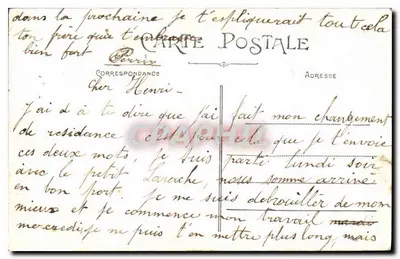 dans la prochaine je t'espliquerait tout cela
ton frère qui t'embrasse
bien fort Perrin
CARTE POSTALE
CORRESPONDANCE
ADRESSE
Cher Henri-
J'ai d à te dire que j'ai fait mon changement
de residance c'est pour cela que je t'envoie
ces deux mots, je suis parti lundi soir
avec le petit Laroche, nous somme arrivé
en bon port. Je me suis debrouiller de mon
mieux et je commence mon travail mardi
mercredi, je ne puis t'en mettre plus long, mais